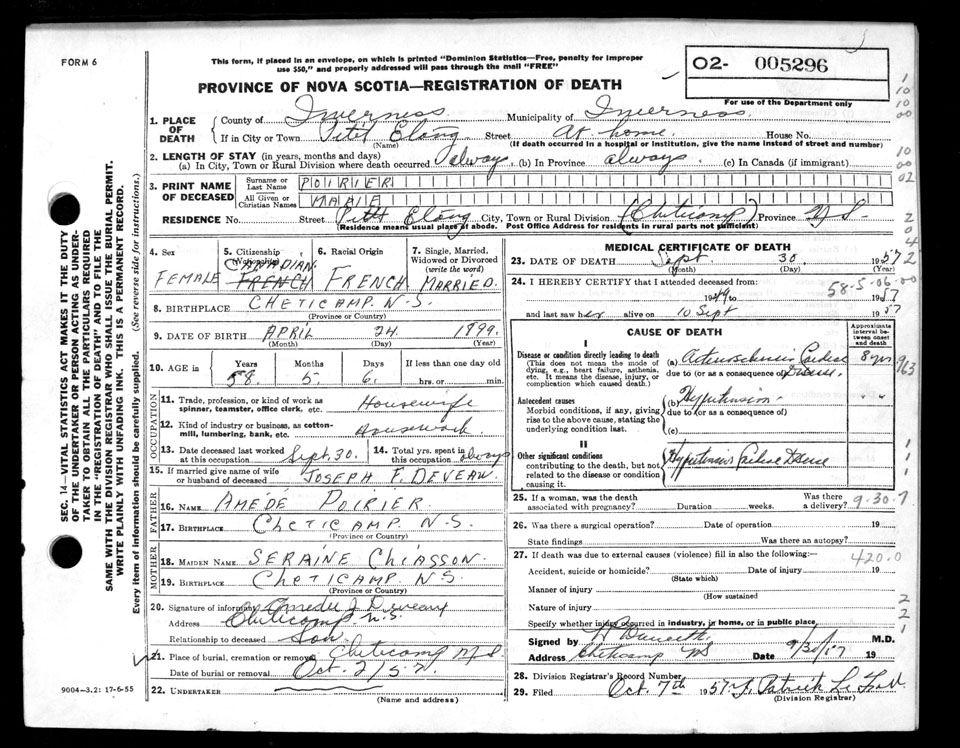 FORM 6
This form, if placed in an envelope, on which is printed "Dominion Statistics—Free, penalty for improper
use $50," and properly addressed will pass through the mail "FREE"
PROVINCE OF NOVA SCOTIA—REGISTRATION OF DEATH
02- 005296
For use of the Department only
1. PLACE OF DEATH
County of Inverness Municipality of Inverness.
If in City or Town Petit Etang Street At home. House No.
(Name) (If death occurred in a hospital or institution, give the name instead of street and number)
2. LENGTH OF STAY (in years, months and days)
(a) In City, Town or Rural Division where death occurred always (b) In Province always. (c) In Canada (if immigrant)
3. PRINT NAME OF DECEASED
Surname or Last Name POIRIER
All Given or Christian Names MARIE
RESIDENCE No. Street Petit Etang City, Town or Rural Division (Cheticamp) Province N.S.
(Residence means usual place of abode. Post Office Address for residents in rural parts not sufficient)
4. Sex FEMALE
5. Citizenship (Nationality) CANADIAN FRENCH
6. Racial Origin FRENCH
7. Single, Married, Widowed or Divorced (write the word) MARRIED.
8. BIRTHPLACE CHETICAMP. N.S.
(Province or Country)
9. DATE OF BIRTH APRIL 24. 1899.
(Month) (Day) (Year)
10. AGE in Years 58 Months 5. Days 6. If less than one day old hrs. or min.
OCCUPATION
11. Trade, profession, or kind of work as spinner, teamster, office clerk, etc. Housewife
12. Kind of industry or business, as cotton-mill, lumbering, bank, etc. Housework
13. Date deceased last worked at this occupation Sept. 30.
14. Total yrs. spent in this occupation always
15. If married give name of wife or husband of deceased JOSEPH F. DEVEAU
FATHER
16. NAME AMEDE POIRIER
17. BIRTHPLACE CHETICAMP. N.S.
(Province or Country)
MOTHER
18. MAIDEN NAME SERAINE CHIASSON.
19. BIRTHPLACE CHETICAMP. N.S.
(Province or Country)
20. Signature of informant Amedee J. Deveau
Address Cheticamp N.S.
Relationship to deceased Son.
21. Place of burial, cremation or removal Cheticamp N.S.
Date of burial or removal Oct. 2/57.
22. UNDERTAKER
(Name and address)
MEDICAL CERTIFICATE OF DEATH
23. DATE OF DEATH Sept 30. 1957
(Month) (Day) (Year)
24. I HEREBY CERTIFY that I attended deceased from:
58-5-06-00
1949 to 1957
and last saw her alive on 10 Sept 1957
CAUSE OF DEATH
Approximate interval between onset and death
I
Disease or condition directly leading to death
(This does not mean the mode of dying, e.g., heart failure, asthenia, etc. It means the disease, injury, or complication which caused death.)
(a) Arteriosclerosis Cardiac Disease. 8 yrs
due to (or as a consequence of)
Antecedent causes
Morbid conditions, if any, giving rise to the above cause, stating the underlying condition last.
(b) Hypertension " "
due to (or as a consequence of)
(c)
II
Other significant conditions
contributing to the death, but not related to the disease or condition causing it.
Hypertensive Cardiac Disease
25. If a woman, was the death associated with pregnancy? Duration weeks. Was there a delivery?
9-30-7
26. Was there a surgical operation? Date of operation 19
State findings Was there an autopsy?
27. If death was due to external causes (violence) fill in also the following:—
420-0
Accident, suicide or homicide? Date of injury 19
(State which)
Manner of injury
(How sustained)
Nature of injury
Specify whether injury occurred in industry, in home, or in public place,
Signed by M.D.
Address Cheticamp NS Date 9/30/57 19
28. Division Registrar's Record Number
29. Filed Oct. 7th 1957 Patrick Le
(Division Registrar)
9004-3.2: 17-6-55
SEC. 14—VITAL STATISTICS ACT MAKES IT THE DUTY
OF THE UNDERTAKER OR PERSON ACTING AS UNDER-
TAKER TO OBTAIN ALL THE PARTICULARS REQUIRED
IN THE "REGISTRATION OF DEATH" AND TO FILE THE
SAME WITH THE DIVISION REGISTRAR WHO SHALL ISSUE THE BURIAL PERMIT.
WRITE PLAINLY WITH UNFADING INK. THIS IS A PERMANENT RECORD.
Every item of information should be carefully supplied. (See reverse side for instructions.)